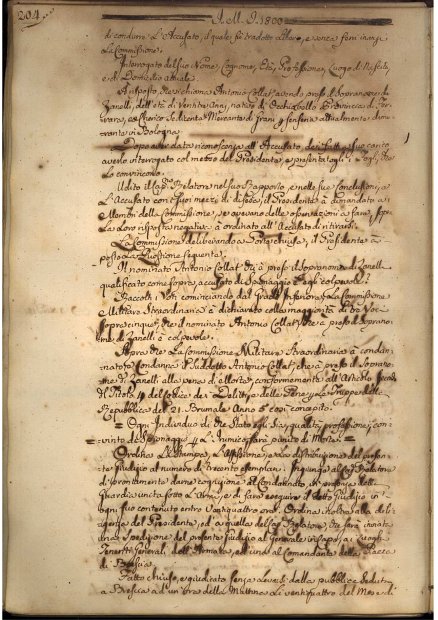 204
A. M. D. 1800
di condurre L'Accusato, il quale fù tradotto Libero, e senza ferri innanzi
La Commissione.
Interrogato del suo Nome, Cognome, Età, Professione, Luogo di Nascita,
e di Domicilio attuale
A risposto che si chiama Antonio Collat' avendo preso il Sopranome di
Zanelli, dell'età di Ventitre Anni, nativo di Occhiobello Provincia di Fer-
rara, ex Mercante di Grani, e
Bologna
Dopo aver data riconoscenza all'Accusato dei fatti a suo carico
averlo interrogato col mezzo del Presidente, e presentategli
Lo convincono.
Udito il Cap.º Relatore nel suo Rapporto, e nelle sue Conclusioni, e
L'Accusato con i suoi mezzi di difesa, il Presidente à domandato ai
Membri della Commissione, se avevano delle osservazioni a fare, sopra
La Loro risposta negativa à ordinato all'Accusato di ritirarsi
La Commissione deliberando a Porte chiuse, il Presidente à
posto La Questione seguente.
Il nominato Antonio Collat' che à preso il Sopranome di Zanelli
qualificato come sopra, accusato di Spionaggio è egli colpevole?
Raccolti i Voti cominciando dal Grado Inferiore, La Commissione
Militare Straordinaria à dichiarato colla maggiorità di tre Voci
sopra cinque, che il nominato Antonio Collat' che à preso il Sopran-
ome di Zanelli è colpevole.
Sopra di che La Commissione Militare Straordinaria à condan-
nato, e Condanna il suddetto Antonio Collat', che à preso il Sopran-
ome di Zanelli alla pena di Morte, conformemente all'Articolo
Titolo 4 del Codice dei Delitti, e delle Pene per Le Truppe della
Repubblica del 21. Brumale Anno 5 così concepito.
= Ogni Individuo di che Stato egli sia, qualità, professione, con-
= vinto di Spionaggio p L'inimico sarà punito di Morte. =
Ordina La Stampa, L'Affissione, e La distribuzione del presen-
te Giudizio al numero di Trecento esemplari: Ingiunge al Cap.º Relatore
di prontamente darne cognizione al Condannato in presenza della
Guardia unita sotto L'Armi, e di fare eseguire il detto Giudizio in
ogni suo contenuto entro Ventiquattro ore. Ordina inoltre alla dili-
genza del Presidente, ed a quella del Cap.º Relatore che sarà inviata
una Spedizione del presente Giudizio al Generale in Capo, ai Luogo-
Tenenti Generali, dell'Armata, ed uno al Comandante della Piazza
di Brescia.
Fatto chiuso, e giudicato senza Levarsi dalla pubblica Seduta
a Brescia ad un'ora della Mattina Li ventiquattro del Mese di